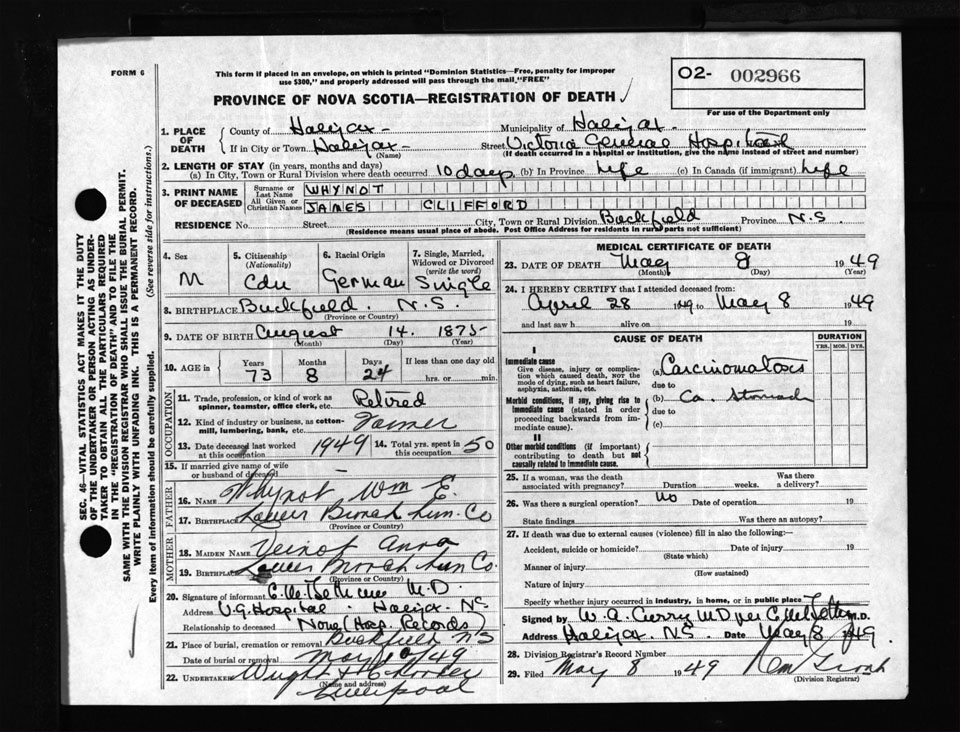 FORM 6
This form if placed in an envelope, on which is printed "Dominion Statistics—Free, penalty for improper
use $300," and properly addressed will pass through the mail "FREE"
O2- 002966
PROVINCE OF NOVA SCOTIA—REGISTRATION OF DEATH
For use of the Department only
1. PLACE OF DEATH
County of Halifax Municipality of Halifax
If in City or Town Halifax (Name) Street Victoria General Hospital
(If death occurred in a hospital or institution, give the name instead of street and number)
2. LENGTH OF STAY (in years, months and days)
(a) In City, Town or Rural Division where death occurred 10 days (b) In Province Life (c) In Canada (if immigrant) Life
3. PRINT NAME OF DECEASED
Surname or Last Name WHYNOT
All Given or Christian Names JAMES CLIFFORD
RESIDENCE No. Street City, Town or Rural Division Buckfield Province N.S.
(Residence means usual place of abode. Post Office Address for residents in rural parts not sufficient)
4. Sex M
5. Citizenship (Nationality) Cdn
6. Racial Origin German
7. Single, Married, Widowed or Divorced (write the word) Single
8. BIRTHPLACE Buckfield N.S.
(Province or Country)
9. DATE OF BIRTH August 14. 1875
(Month) (Day) (Year)
10. AGE in Years 73 Months 8 Days 24 If less than one day old hrs. or min.
OCCUPATION
11. Trade, profession, or kind of work as spinner, teamster, office clerk, etc. Retired
12. Kind of industry or business, as cotton-mill, lumbering, bank, etc. Farmer
13. Date deceased last worked at this occupation 1949 14. Total yrs. spent in 50
15. If married give name of wife or husband of deceased –
FATHER
16. NAME Whynot Wm E.
17. BIRTHPLACE Lun. Co
(Province or Country)
MOTHER
18. MAIDEN NAME Veinot Anna
19. BIRTHPLACE Lun Co.
(Province or Country)
20. Signature of informant M.D.
Address V.G. Hospital. Halifax. NS
Relationship to deceased None (Hosp. Records)
21. Place of burial, cremation or removal Buckfield NS
Date of burial or removal May 10/49
22. UNDERTAKER Wright &
(Name and address)
Liverpool
MEDICAL CERTIFICATE OF DEATH
23. DATE OF DEATH May 8 1949
(Month) (Day) (Year)
24. I HEREBY CERTIFY that I attended deceased from:
April 28 1949 to May 8 1949
and last saw h alive on 19
CAUSE OF DEATH
DURATION
YRS. MOS. DYS.
I
Immediate cause
Give disease, injury or complication which caused death, NOT the mode of dying, such as heart failure, asphyxia, asthenia, etc.
(a) Carcinomatosis
due to
Morbid conditions, if any, giving rise to immediate cause (stated in order proceeding backwards from immediate cause)
(b) Ca. Stomach
due to
(c)
II
Other morbid conditions (if important) contributing to death but not causally related to immediate cause.
25. If a woman, was the death associated with pregnancy? Duration weeks. Was there a delivery?
26. Was there a surgical operation? No Date of operation 19
State findings Was there an autopsy?
27. If death was due to external causes (violence) fill in also the following:—
Accident, suicide or homicide? Date of injury 19
(State which)
Manner of injury
(How sustained)
Nature of injury
Specify whether injury occurred in industry, in home, or in public place
Signed by W. A. Curry MD per M.D.
Address Halifax. NS. Date May 8 1949
28. Division Registrar's Record Number
29. Filed May 8 1949
(Division Registrar)
SEC. 46—VITAL STATISTICS ACT MAKES IT THE DUTY
OF THE UNDERTAKER OR PERSON ACTING AS UNDER-
TAKER TO OBTAIN ALL THE PARTICULARS REQUIRED
IN THE "REGISTRATION OF DEATH" AND TO FILE THE
SAME WITH THE DIVISION REGISTRAR WHO SHALL ISSUE THE BURIAL PERMIT.
WRITE PLAINLY WITH UNFADING INK. THIS IS A PERMANENT RECORD.
Every item of information should be carefully supplied. (See reverse side for instructions.)